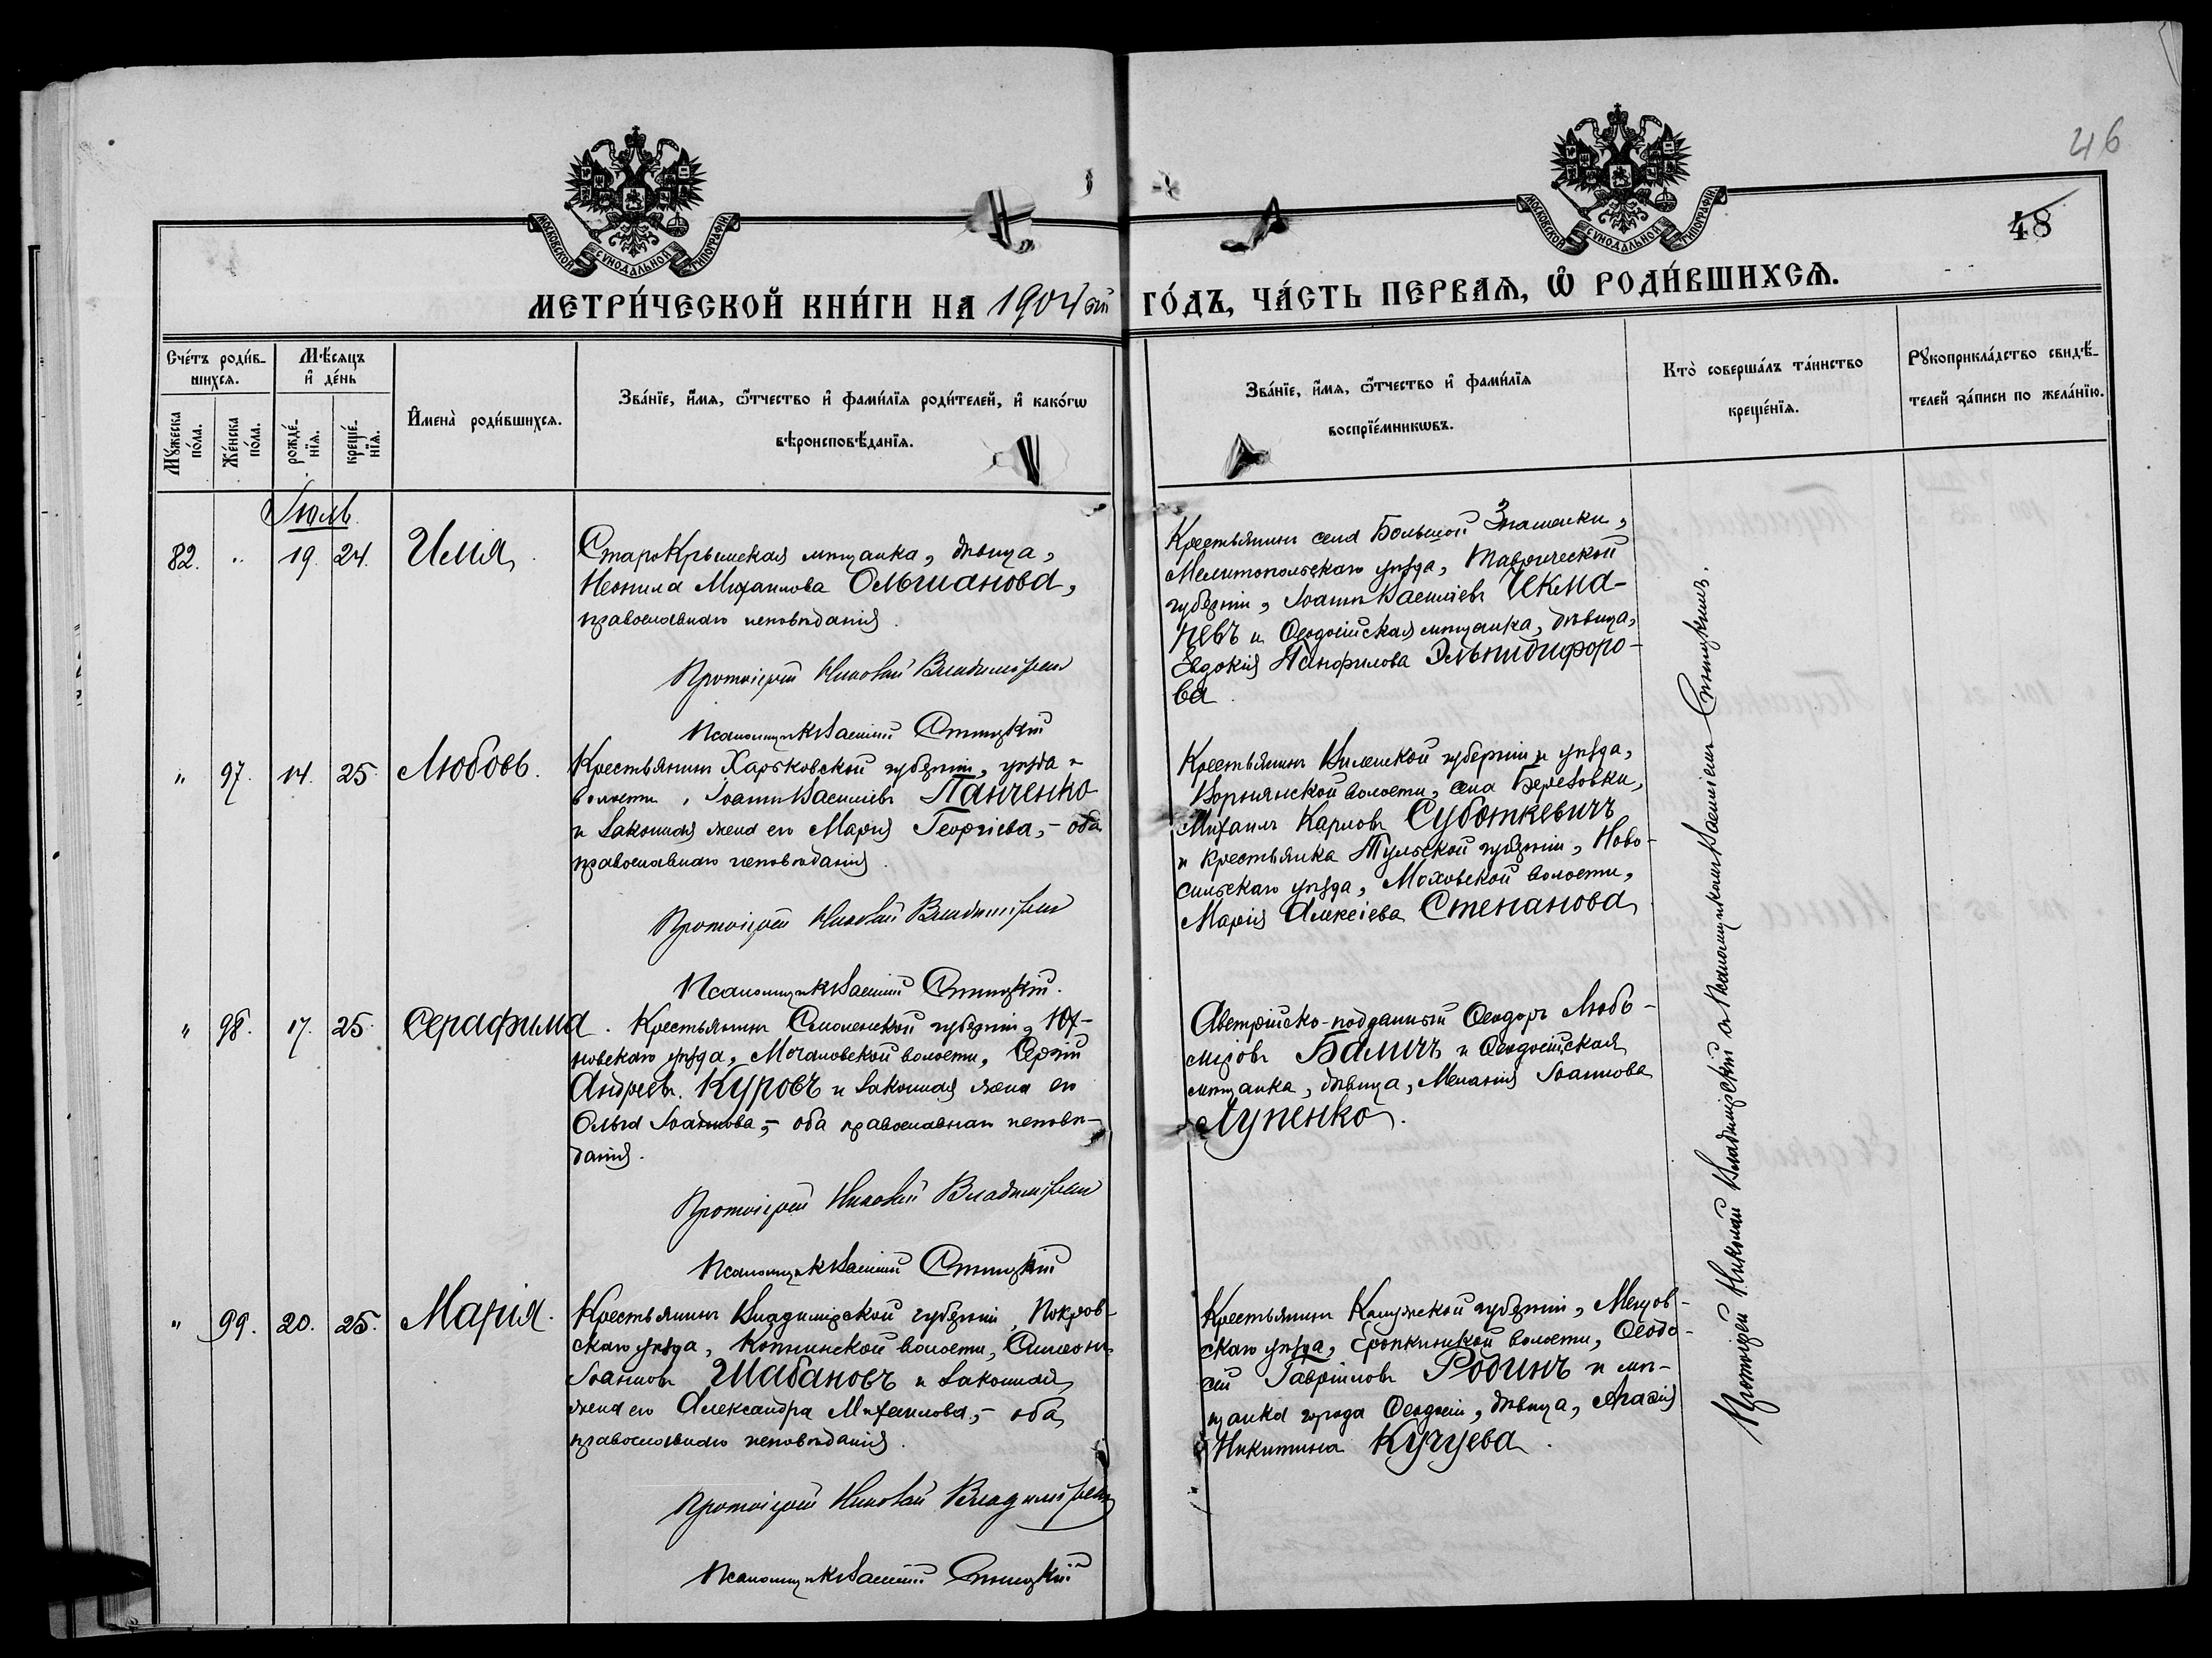 46
48
МОСКОВСКОЙ СѴНОДАЛЬНОЙ ТИПОГРАФІИ
МОСКОВСКОЙ СѴНОДАЛЬНОЙ ТИПОГРАФІИ
МЕТРИ́ЧЕСКОЙ КНИ́ГИ НА 1904 ый ГО́ДЪ, ЧА́СТЬ ПЕРВАѦ, Ѡ҆ РОДИ́ВШИХСѦ.
Сче́тъ роди́в-
шихсѧ.
Мꙋ́жеска по́ла.
Же́нска по́ла.
Мѣ́сѧцъ
и҆ де́нь
рожде́-
нїѧ.
креще́-
нїѧ.
И҆мена̀ роди́вшихсѧ.
Зва́нїе, и҆́мѧ, ѻ҆́тчество и҆ фами́лїѧ роди́телей, и҆ како́гѡ
вѣроисповѣ́данїѧ.
Зва́нїе, и҆́мѧ, ѻ҆́тчество и҆ фами́лїѧ
воспрїе́мникѡвъ.
Кто̀ соверша́лъ та́инство
креще́нїѧ.
Рꙋкоприкла́дство свидѣ́-
телей за́писи по жела́нїю.
Іюль.
82. " 19. 24. Илія.
СтароКрымская мѣщанка, дѣвица,
Неонила Михаилова Ольшанова,
православнаго исповѣданія.
Протоіерей Николай Владимірскій
Псаломщикъ Василій Стицкій
Крестьянинъ села Большой Знаменки,
Мелитопольскаго уѣзда, Таврической
губерніи, Іоаннъ Васильевъ Чекма-
ревъ и Ѳеодосійская мѣщанка, дѣвица,
Евдокія Панфилова Эльпидифоро-
ва.
" 97. 14. 25. Любовь.
Крестьянинъ Харьковской губерніи, уѣзда и
волости, Іоаннъ Васильевъ Панченко
и законная жена его Марія Георгіева, - оба
православнаго исповѣданія.
Протоіерей Николай Владимірскій
Псаломщикъ Василій Стицкій.
Крестьянинъ Виленской губерніи и уѣзда,
Ворнянской волости, села Березовки,
Михаилъ Карповъ Суботкевичъ
и крестьянка Тульской губерніи, Ново-
сильскаго уѣзда, Моховской волости,
Марія Алексіева Степанова
" 98. 17. 25. Серафима.
Крестьянинъ Смоленской губерніи, Юх-
новскаго уѣзда, Мочаловской волости, Сергій
Андреевъ Куровъ и законная жена его
Ольга Іоаннова, - оба православнаго исповѣ-
данія.
Протоіерей Николай Владимірскій
Псаломщикъ Василій Стицкій
Австрійско-подданный Ѳеодоръ Любо-
міровъ Баличъ и Ѳеодосійская
мѣщанка, дѣвица, Меланія Іоаннова
Лупенко.
" 99. 20. 25. Марія.
Крестьянинъ Владимірской губерніи, Покров-
скаго уѣзда, волости, Симеонъ
Іоанновъ Шабановъ и законная
жена его Александра Михаилова, - оба
православнаго исповѣданія.
Протоіерей Николай Владимірскій
Псаломщикъ Василій Стицкій
Крестьянинъ Калужской губерніи, Мещов-
скаго уѣзда, Еропкинской волости, Ѳеодо-
сій Гавріиловъ Родинъ и мѣ-
щанка города Ѳеодосіи, дѣвица,
Никитина Кучуева.
Протоіерей Николай Владимірскій съ Псаломщикомъ Василіемъ Стицкимъ.